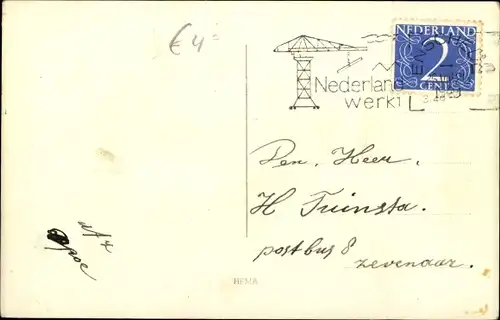 € 4=
NEDERLAND
2
CENT
Nederland
werkt
Den Heer.
H Tuinsta.
postbus 8
Zevenaar.
HEMA